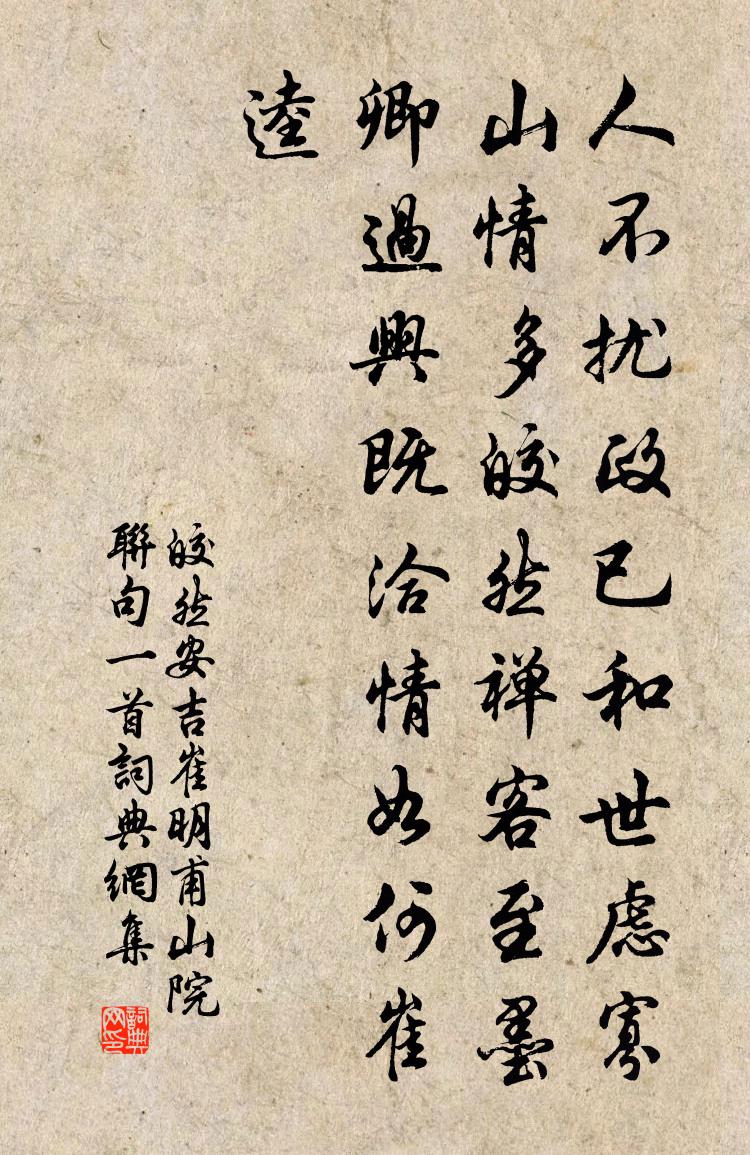 人不扰政已和世慮寡
山情多皎然禅客至墨
卿過興既洽情如何崔
逵
皎然安吉崔明甫山院
聯句一首詞典網集
詞典
网印